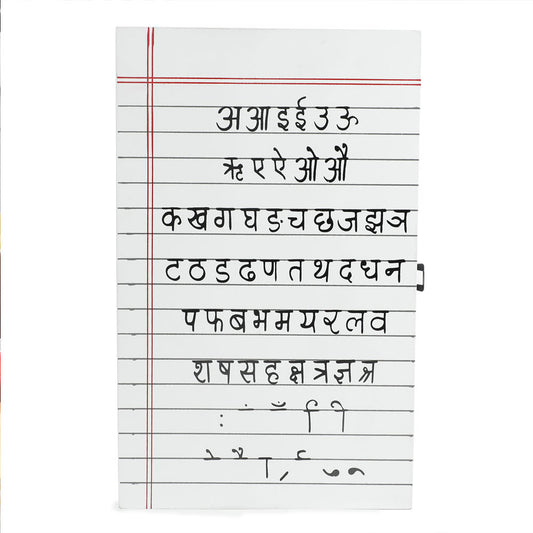 अ आ इ ई उ ऊ
ऋ ए ऐ ओ औ
क ख ग घ ङ च छ ज झ ञ
ट ठ ड ढ ण त थ द ध न
प फ ब भ म य र ल व
श ष स ह क्ष त्र ज्ञ श्र